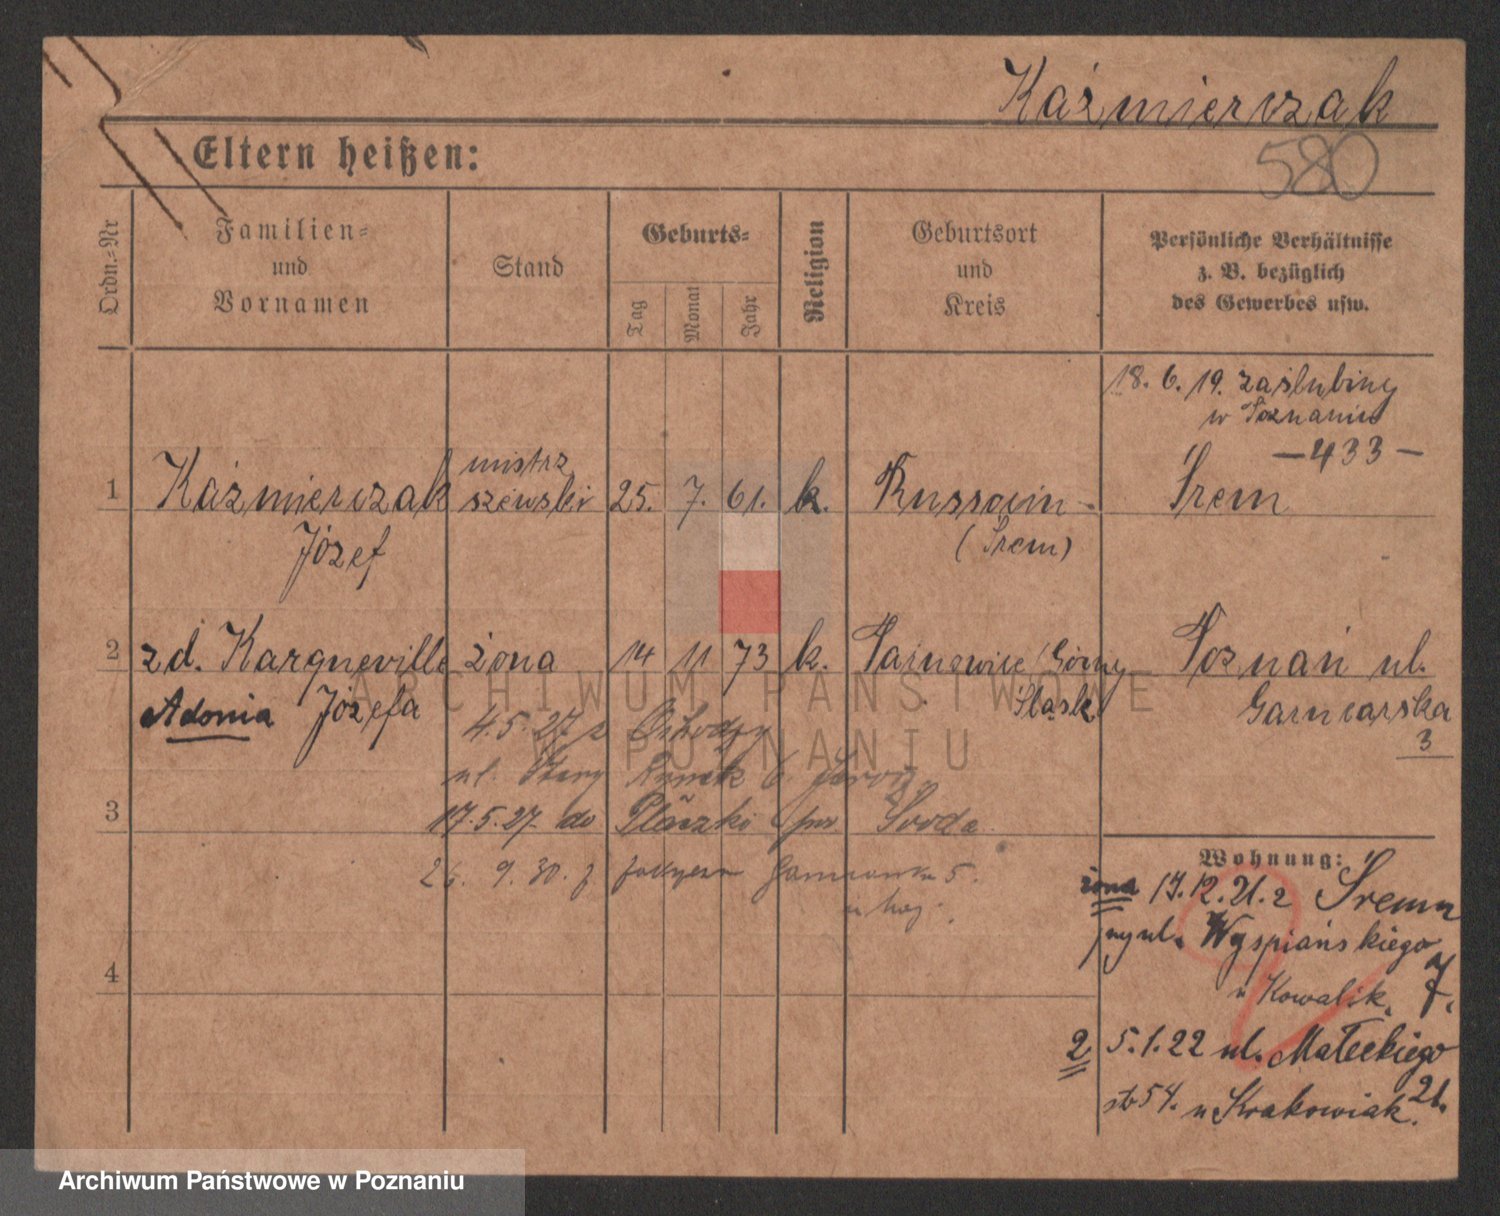 Kaźmierczak
580
Eltern heißen:
Ordn.-Nr
Familien-
und
Vornamen
Stand
Geburts-
Tag
Monat
Jahr
Religion
Geburtsort
und
Kreis
Persönliche Verhältnisse
z. B. bezüglich
des Gewerbes usw.
18. 6. 19. zaślubiny
w Poznaniu
— 433 —
1 Kaźmierczak mistrz szewski 25. 7. 61. k. Russocin Śrem
Józef (Śrem)
2 zd. Kargneville żona 14 11 73 k. Tarnowice / Górny Poznań ul.
Adonia Józefa Śląsk Garncarska
3
4.5.27 z
ul. Stary Rynek 6
3 17.5.27 do
26. 9. 30. z 5.
Wohnung:
żona 17.12.21. z Śremu
przy ul. Wyspiańskiego
u Kowalik. 7.
4
2 5.1.22 ul. Małeckiego
21.
u Krakowiak.
ARCHIWUM PAŃSTWOWE
W POZNANIU
Archiwum Państwowe w Poznaniu